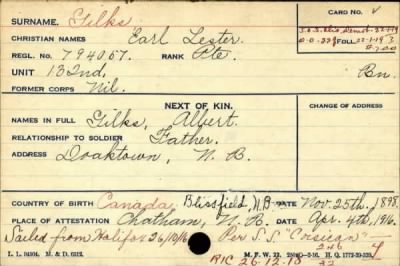 SURNAME. Gilks
CARD NO.
CHRISTIAN NAMES Earl Lester.
REGL. NO. 794057. RANK Pte.
FOLL.
UNIT 132nd. Bn.
FORMER CORPS Nil.
NEXT OF KIN.
CHANGE OF ADDRESS
NAMES IN FULL Gilks, Albert.
RELATIONSHIP TO SOLDIER Father.
ADDRESS Doaktown, N. B.
COUNTRY OF BIRTH Canada, Blissfield, N.B. DATE Nov. 25th. 1898
PLACE OF ATTESTATION Chatham, N. B. DATE Apr. 4th, 1916.
Sailed from Halifax 26/10/16 Per S.S. "Corsican"
L. L. M. & D. M. F. W. 22. H. Q.
R/C 26-12-18